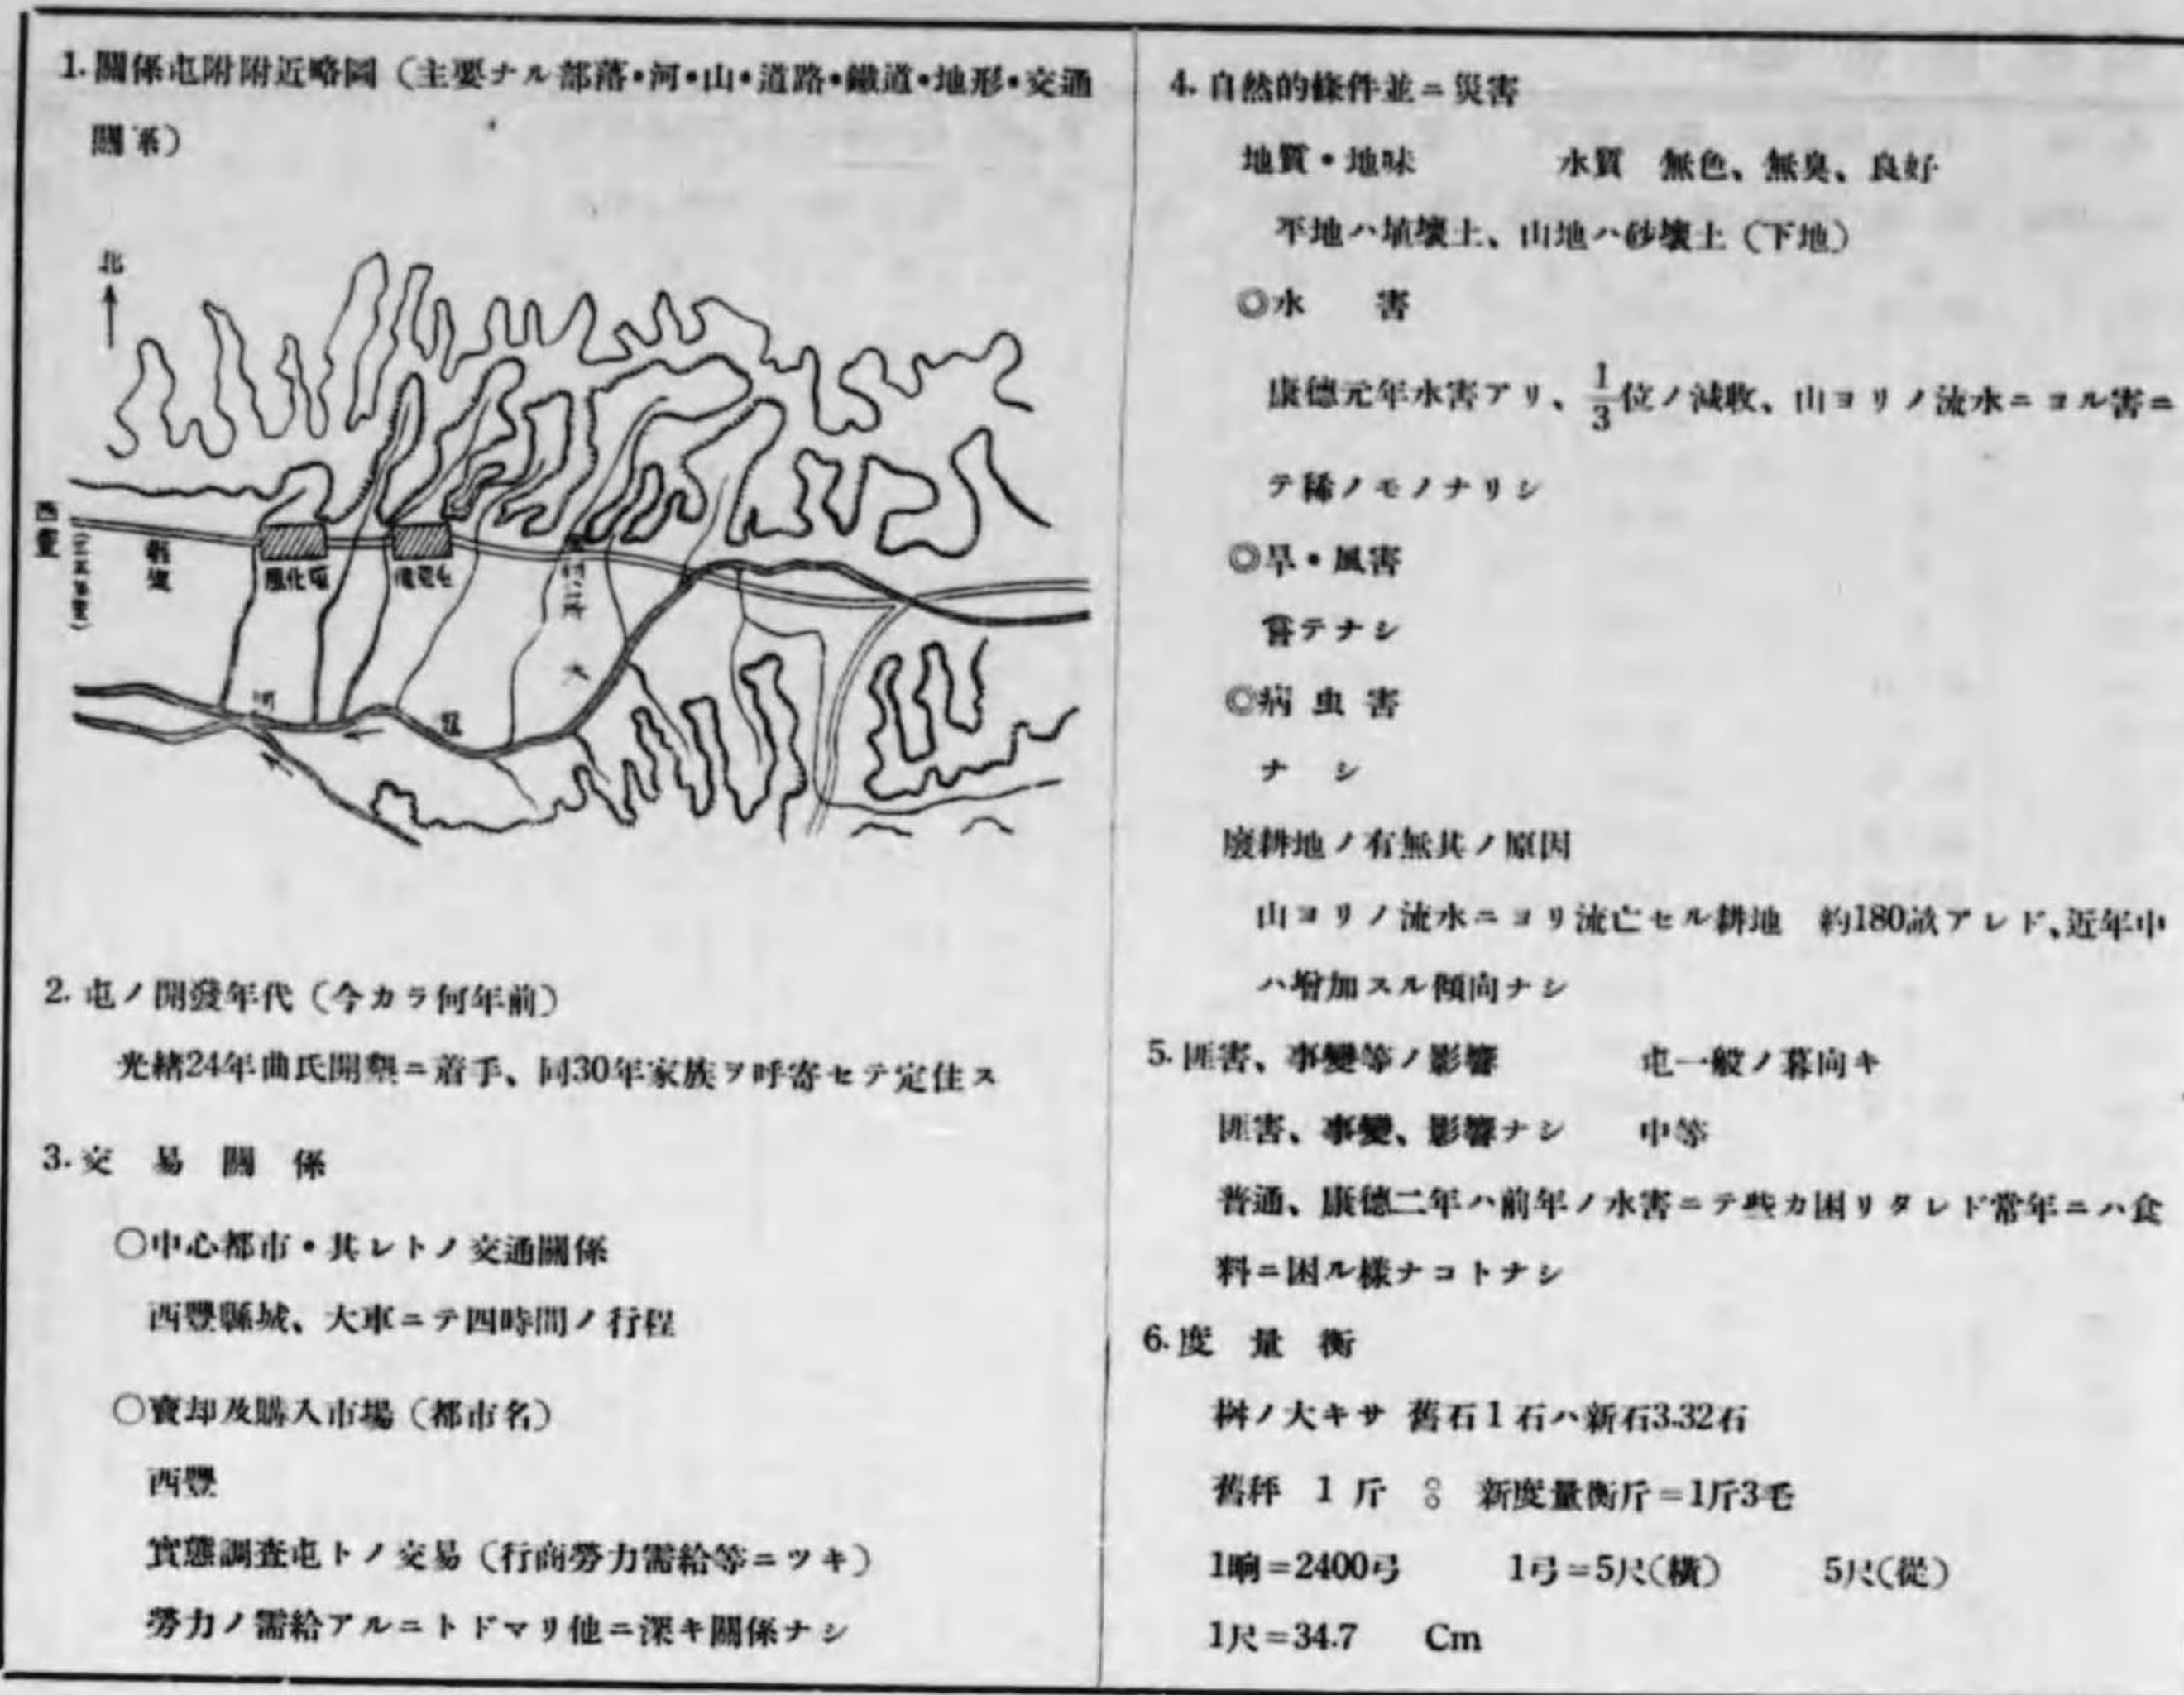 1. 關係屯附附近略圖（主要ナル部落・河・山・道路・鐵道・地形・交通
關係）
北
西豐
縣道
大
河
2. 屯ノ開發年代（今カラ何年前）
光緒24年曲氏開墾ニ着手、同30年家族ヲ呼寄セテ定住ス
3. 交易關係
○中心都市・其レトノ交通關係
西豐縣城、大車ニテ四時間ノ行程
○賣却及購入市場（都市名）
西豐
實態調査屯トノ交易（行商勞力需給等ニツキ）
勞力ノ需給アルニトドマリ他ニ深キ關係ナシ
4. 自然的條件並ニ災害
地質・地味　水質　無色、無臭、良好
平地ハ埴壤土、山地ハ砂壤土（下地）
◎水害
康德元年水害アリ、1/3位ノ減收、山ヨリノ流水ニヨル害ニ
テ稀ノモノナリシ
◎旱・風害
嘗テナシ
◎病虫害
ナシ
廢耕地ノ有無其ノ原因
山ヨリノ流水ニヨリ流亡セル耕地　約180畝アレド、近年中
ハ增加スル傾向ナシ
5. 匪害、事變等ノ影響　屯一般ノ暮向キ
匪害、事變、影響ナシ　中等
普通、康德二年ハ前年ノ水害ニテ些カ困リタレド常年ニハ食
料ニ困ル樣ナコトナシ
6. 度量衡
桝ノ大キサ　舊石1石ハ新石3.32石
舊秤　1斤　新度量衡斤＝1斤3毛
1晌＝2400弓　1弓＝5尺（橫）　5尺（從）
1尺＝34.7　Cm